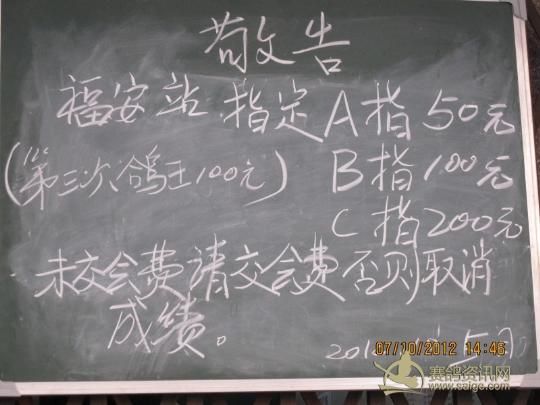 敬告
福安站指定A指50元
(第三次鸽王100元) B指100元
C指200元
未交会费请交会费否则取消
成绩。
07/10/2012 14:46
赛鸽资讯网
www.saige.com